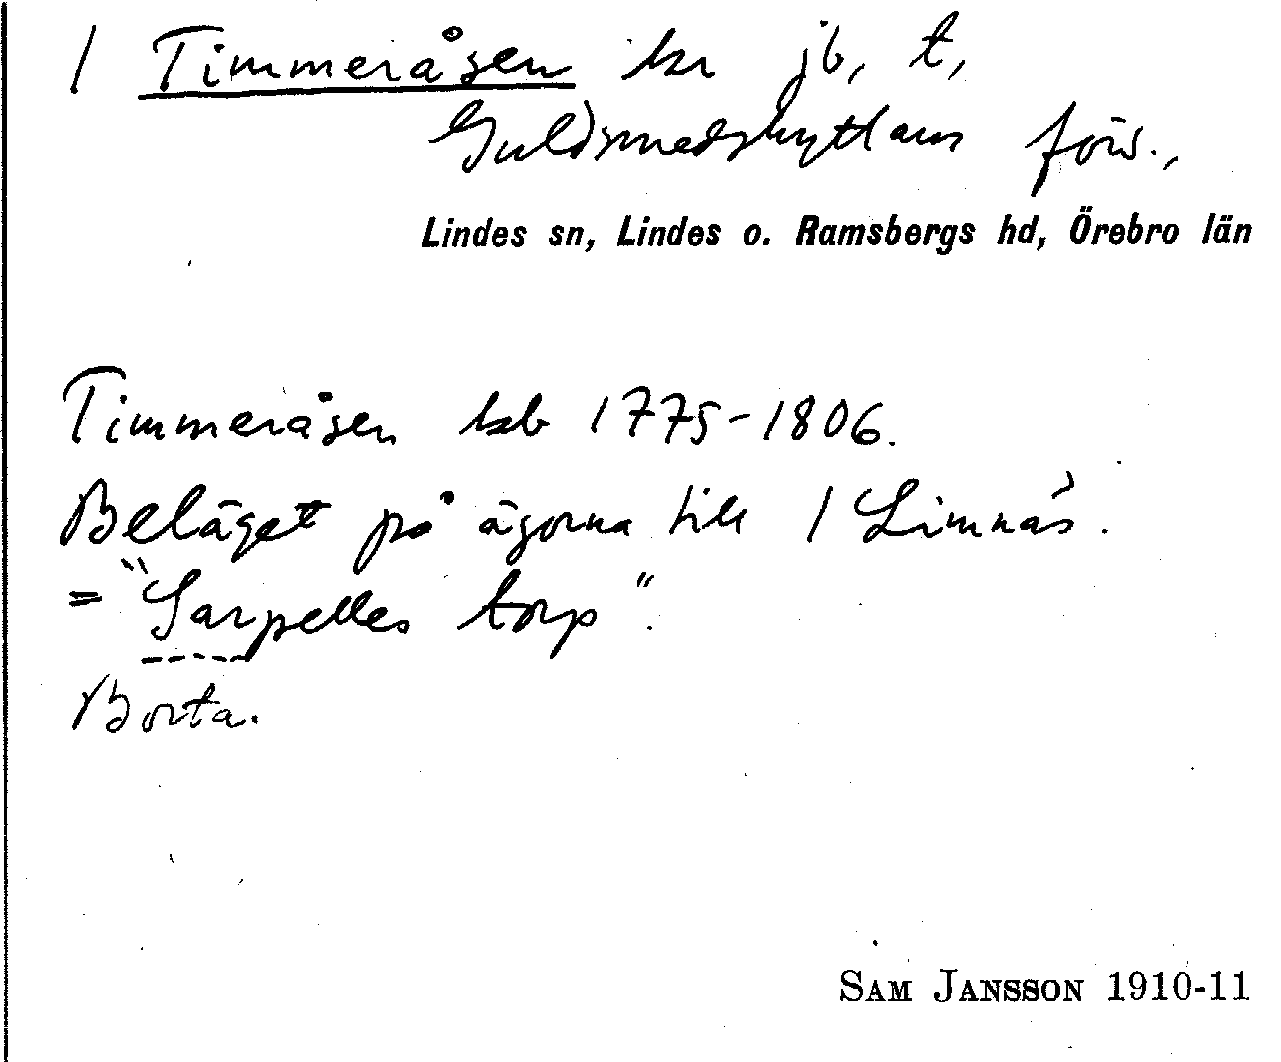 / Timmeråsen kr jb, t,
Guldsmedshyttans förs.,
Lindes sn, Lindes o. Ramsbergs hd, Örebro län
Timmeråsen kb 1775-1806.
Beläget på ägorna till / Limnäs.
= "Sarpelles torp".
Borta.
SAM JANSSON 1910-11